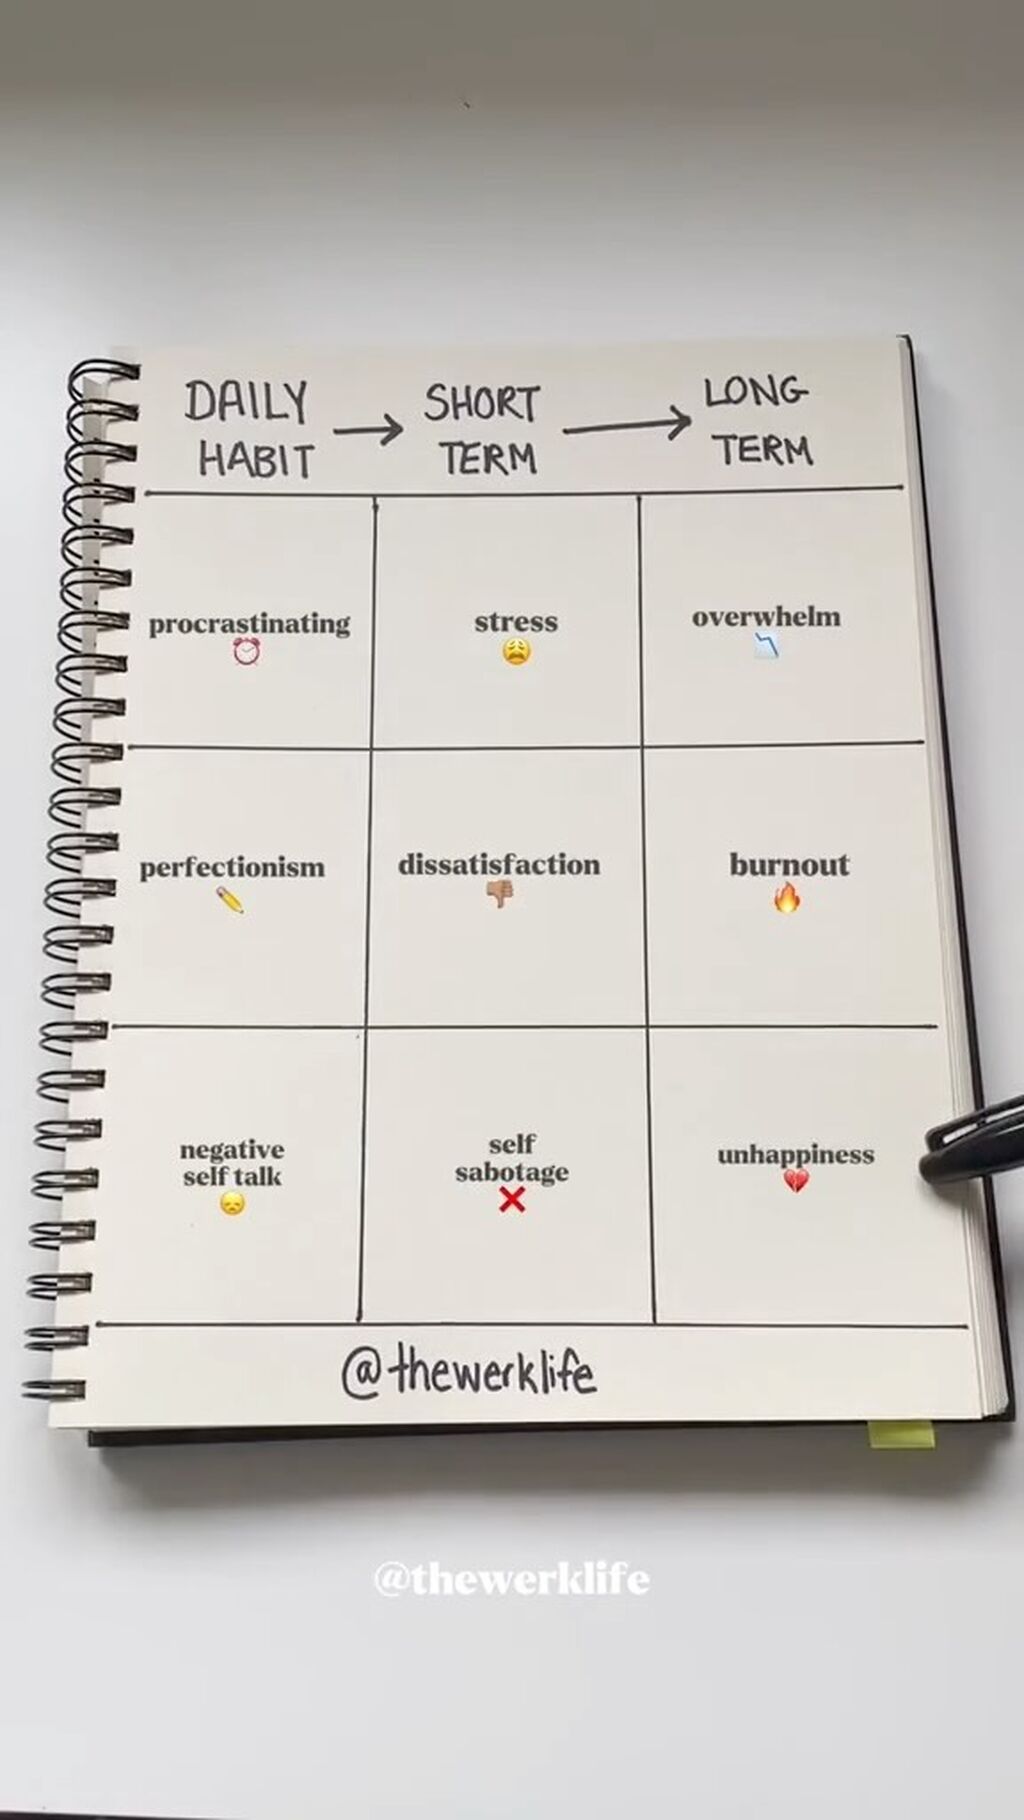 DAILY HABIT → SHORT TERM → LONG TERM
procrastinating ⏰
stress 😩
overwhelm 📉
perfectionism ✏️
dissatisfaction 👎🏽
burnout 🔥
negative
self talk 😞
self
sabotage ❌
unhappiness 💔
@thewerklife
@thewerklife